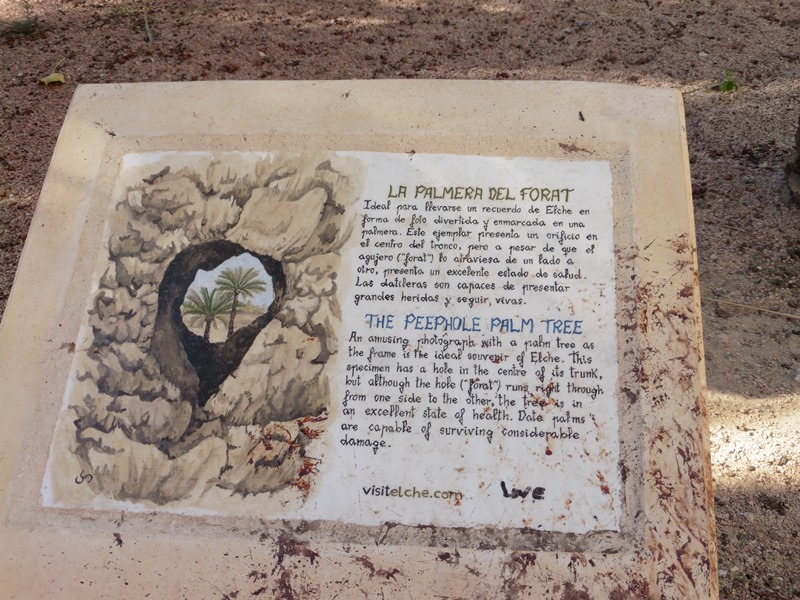 LA PALMERA DEL FORAT
Ideal para llevarse un recuerdo de Elche en
forma de foto divertida y enmarcada en una
palmera. Este ejemplar presenta un orificio en
el centro del tronco, pero a pesar de que el
agujero ("forat") lo atraviesa de un lado a
otro, presenta un excelente estado de salud.
Las datileras son capaces de presentar
grandes heridas y seguir, vivas.
THE PEEPHOLE PALM TREE
An amusing photograph with a palm tree as
the frame is the ideal souvenir of Elche. This
specimen has a hole in the centre of its trunk,
but although the hole ("forat") runs right through
from one side to the other, the tree is in
an excellent state of health. Date palms
are capable of surviving considerable
damage.
visitelche.com
Love